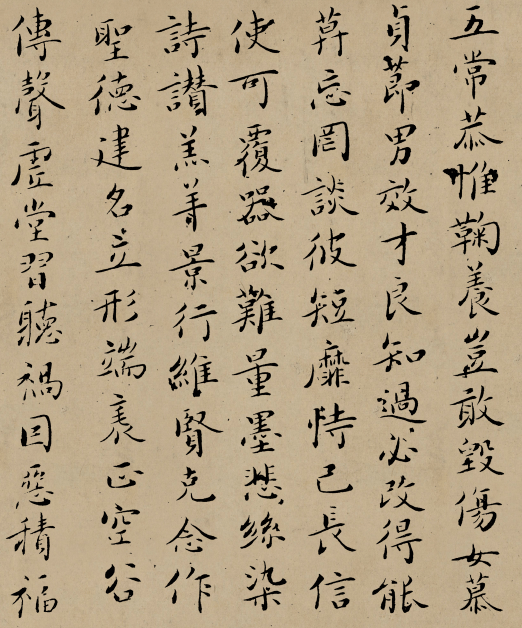 五常恭惟鞠養豈敢毀傷女慕
貞莭男效才良知過必改得能
莫忘罔談彼短靡恃己長信
使可覆器欲難量墨悲絲染
詩讃羔羊景行維賢克念作
聖德建名立形端表正空谷
傳聲虛堂習聽禍因惡積福